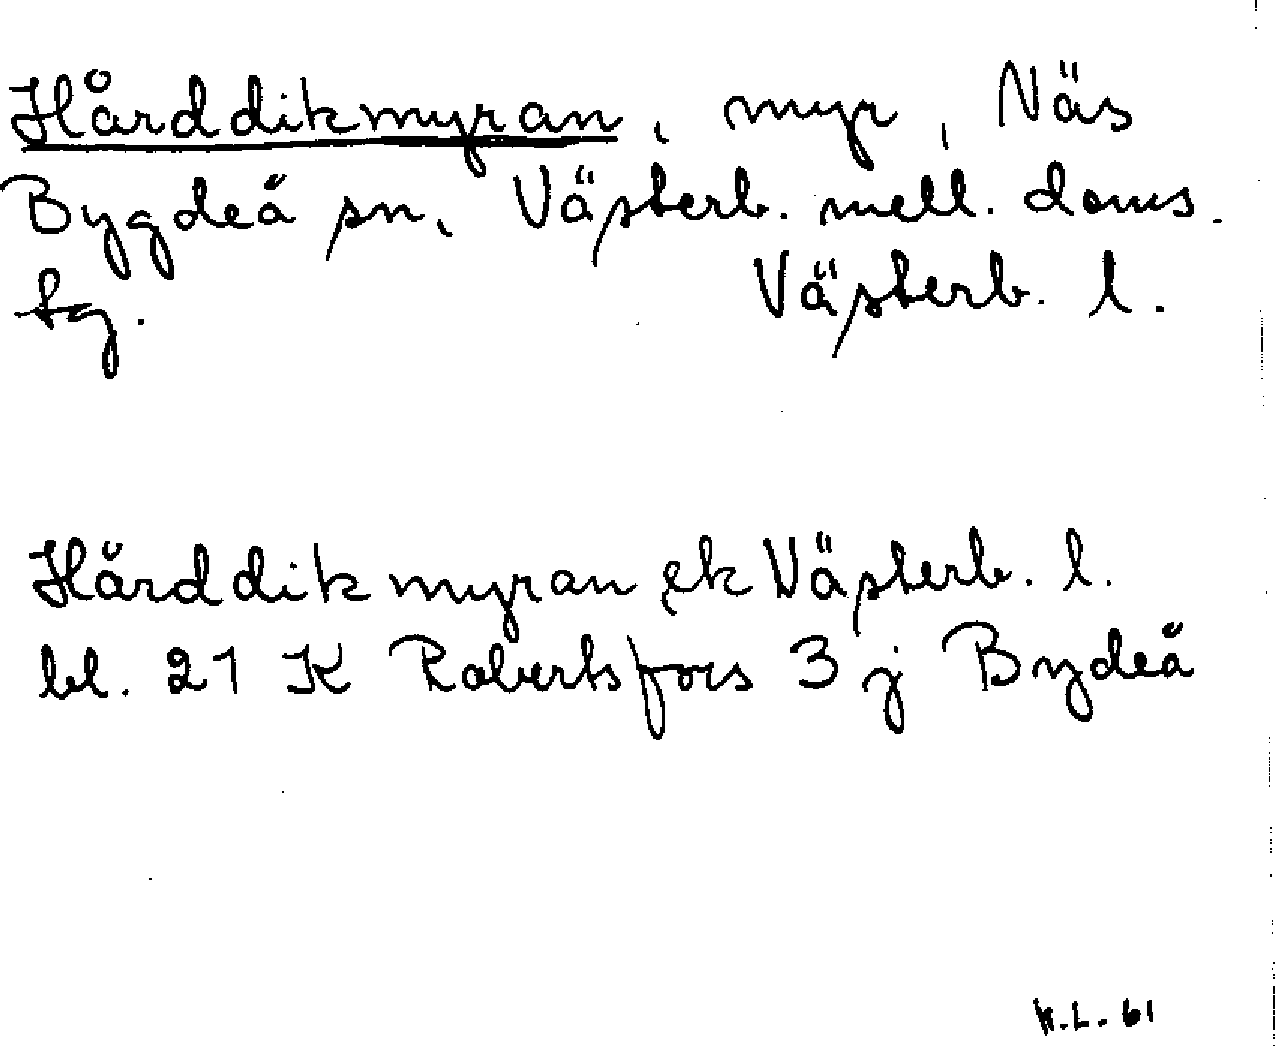 Hårddikmyran, myr, Näs
Bygdeå sn, Västerb. mell. doms.
tg. Västerb. l.
Hårddikmyran ek Västerb. l.
bl. 21 K Robertsfors 3 j Bydeå
K.L. - 61